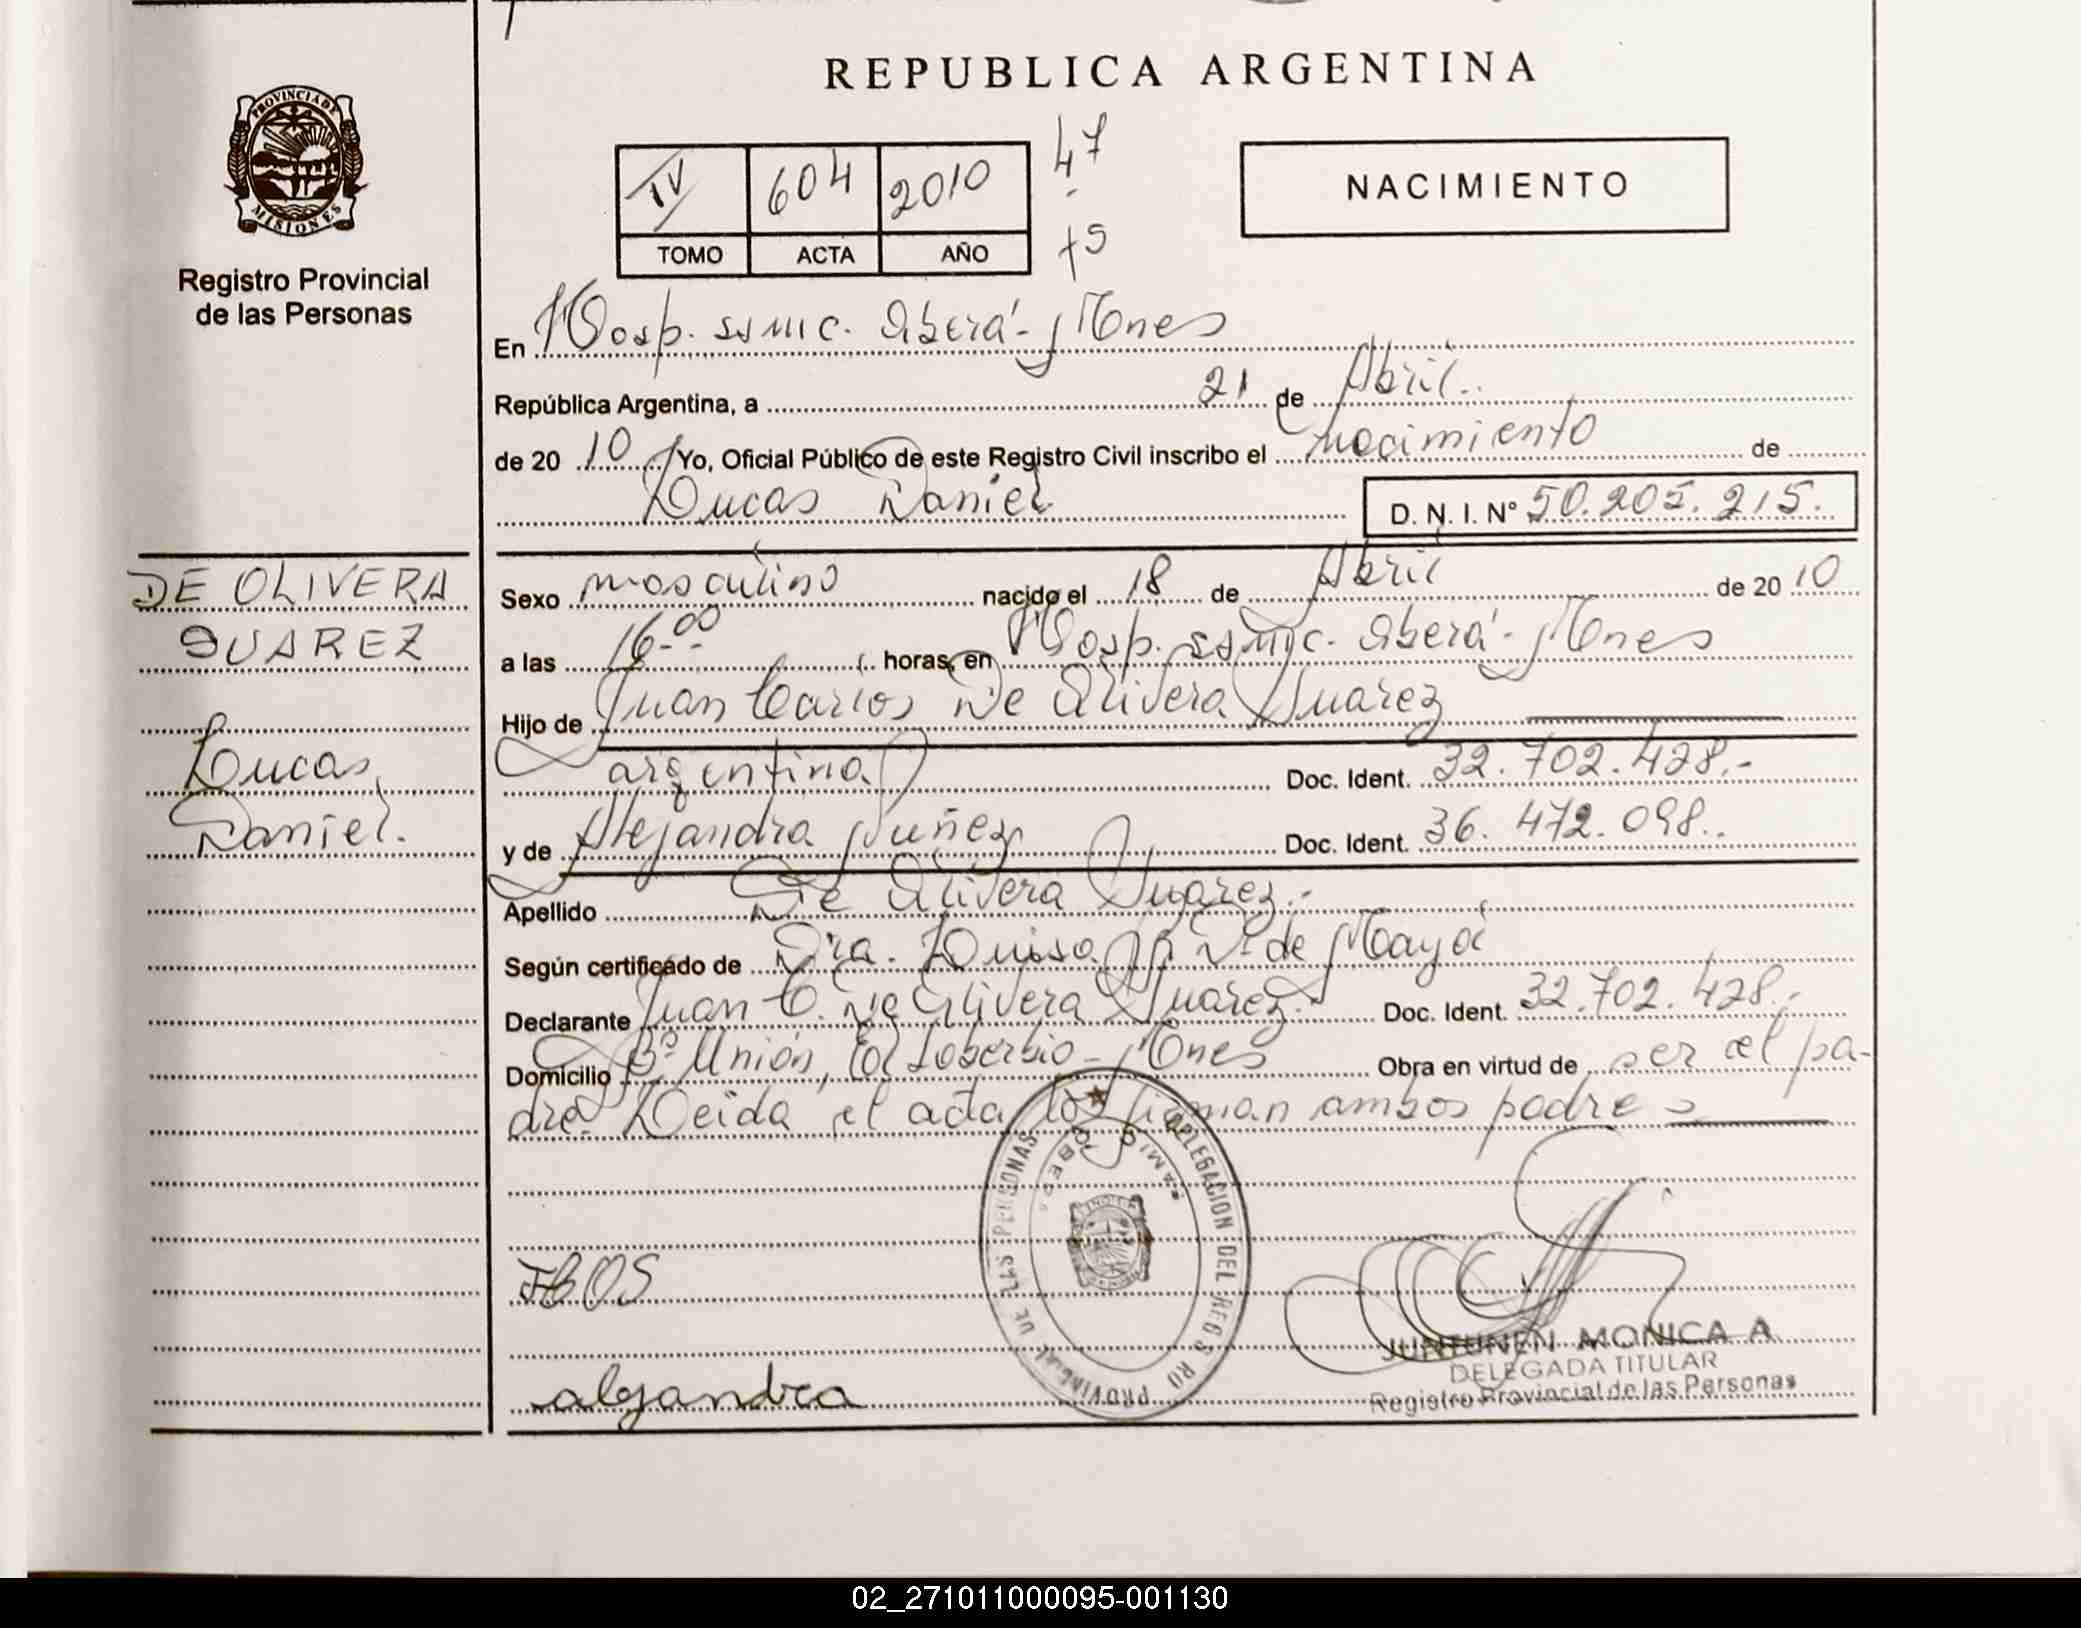 REPUBLICA ARGENTINA
PROVINCIA DE
MISIONES
Registro Provincial
de las Personas
IV 604 2010
TOMO ACTA AÑO
47
75
NACIMIENTO
En Hosp. ssmic. Oberá - Mnes
República Argentina, a 21 de Abril
de 20 10 Yo, Oficial Público de este Registro Civil inscribo el nacimiento de
Lucas Daniel
D. N. I. N° 50.205.215.
DE OLIVERA
SUAREZ
Lucas
Daniel.
Sexo masculino nacido el 18 de Abril de 20 10
a las 16-00 horas, en Hosp. ssmic. Oberá - Mnes
Hijo de Juan Carlos De Olivera Suarez
argentina Doc. Ident. 32.702.428.-
y de Alejandra Nuñez Doc. Ident. 36.472.098..
Apellido De Olivera Suarez.-
Según certificado de Dra. Luisa V. de Mayol
Declarante Juan C. De Olivera Suarez.- Doc. Ident. 32.702.428.-
Domicilio B° Unión, El Soberbio - Mnes Obra en virtud de ser el pa-
dre. Leida el acta la firman ambos padres
DELEGACION DEL REGISTRO PROVINCIAL DE LAS PERSONAS
JCOS
alejandra
JUNTUNEN MONICA A
DELEGADA TITULAR
Registro Provincial de las Personas
02_271011000095-001130